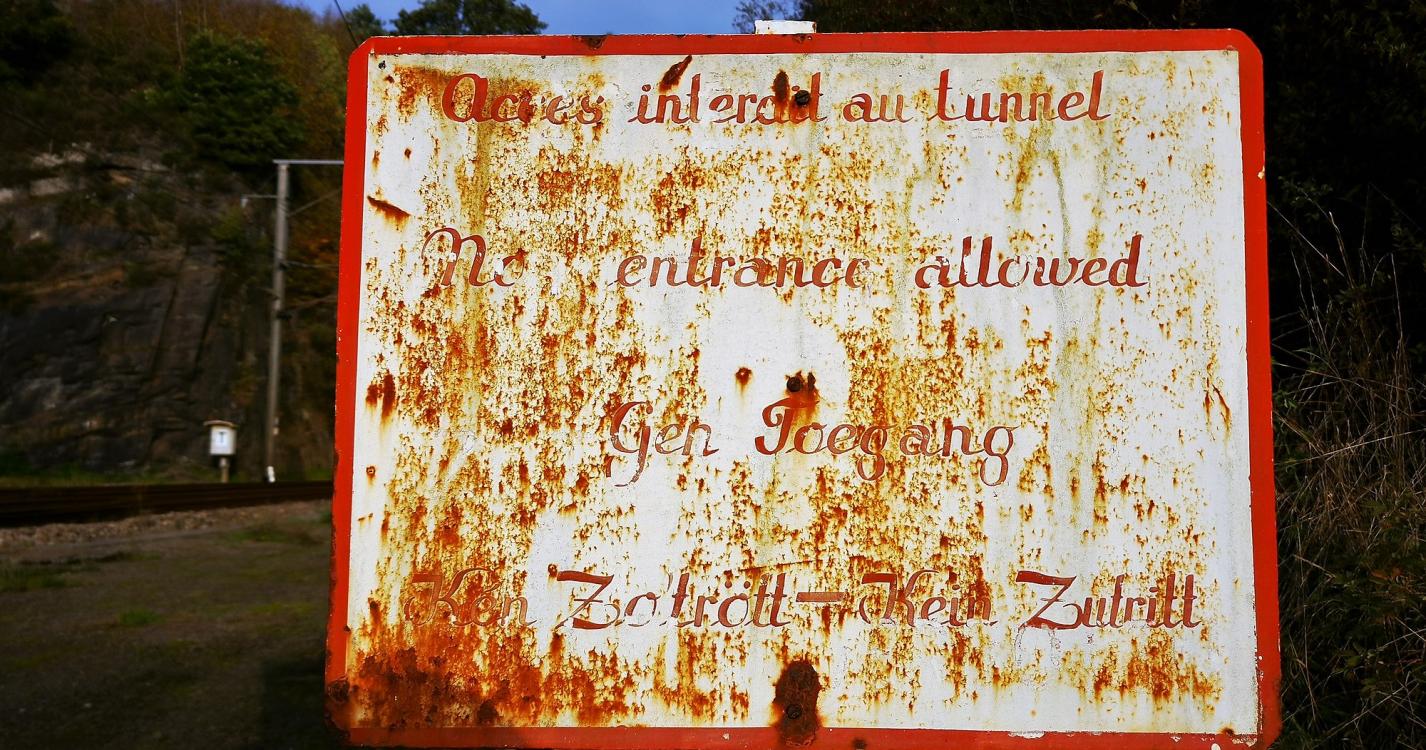 Acces interdit au tunnel
No entrance allowed
Gen Toegang
Kën Zotrött - Kein Zutritt
T